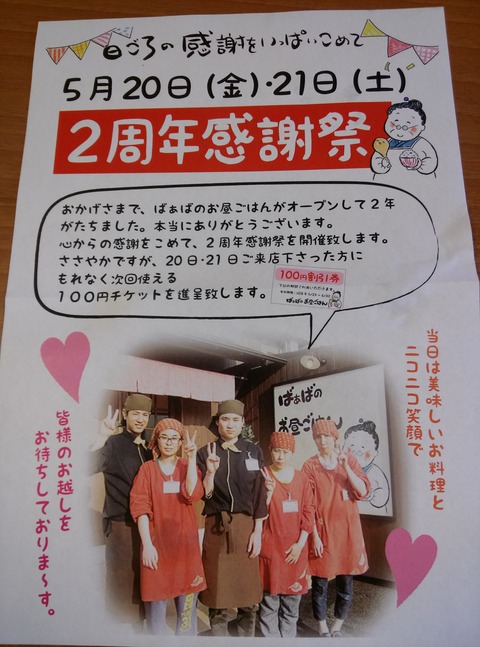 日ごろの感謝をいっぱいこめて
5月20日(金)・21日(土)
2周年感謝祭
おかげさまで、ばぁばのお昼ごはんがオープンして2年
がたちました。本当にありがとうございます。
心からの感謝をこめて、2周年感謝祭を開催致します。
ささやかですが、20日・21日ご来店下さった方に
もれなく次回使える
100円チケットを進呈致します。
100円割引券
ばぁばのお昼ごはん
当日は美味しいお料理と
ニコニコ笑顔で
皆様のお越しを
お待ちしておりま〜す。
ばぁばの
お昼ごはん